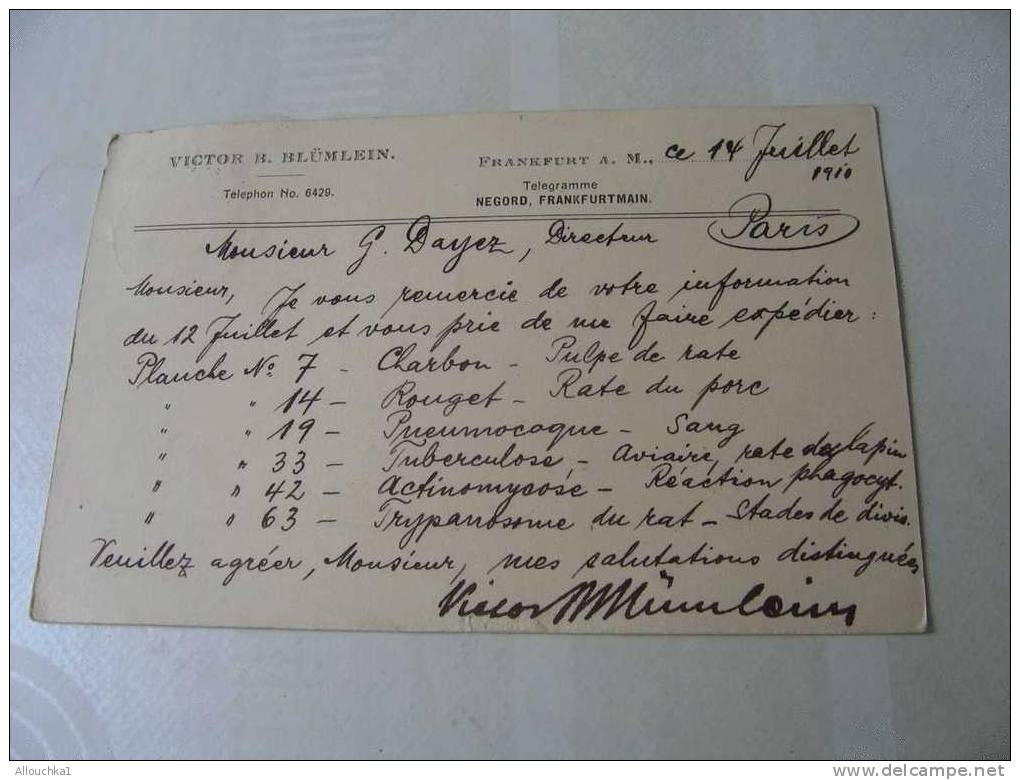 VICTOR B. BLÜMLEIN.
FRANKFURT A. M., ce 14 Juillet
1910
Telephon No. 6429.
Telegramme
NEGORD, FRANKFURTMAIN.
Monsieur G. Dayez, Directeur Paris
Monsieur, Je vous remercie de votre information
du 12 Juillet et vous prie de me faire expédier :
Planche No. 7 - Charbon - Pulpe de rate
" " 14 - Rouget - Rate du porc
" " 19 - Pneumocoque - Sang
" " 33 - Tuberculose - Aviaire, rate de lapin
" " 42 - Actinomycose - Réaction phagocyt.
" " 63 - Trypanosome du rat - Stades de divis.
Veuillez agréer, Monsieur, mes salutations distinguées
Victor B Blümlein
Allouchka1
http://www.delcampe.net